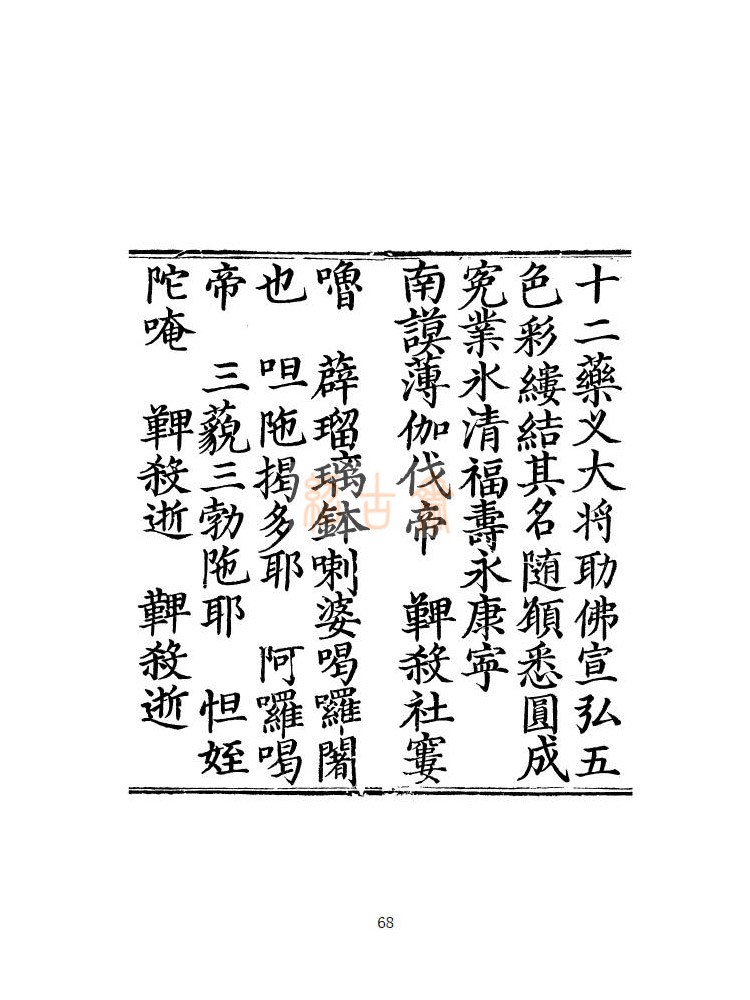 十二藥义大将助佛宣弘五
色彩縷結其名随願悉圓成
寃業氷清福壽永康寧
南謨薄伽伐帝 鞞殺社窶
嚕 薜瑠璃鉢喇婆喝囉闍
也 呾陁揭多耶 阿囉喝
帝 三藐三勃陁耶 怛姪
陀唵 鞞殺逝 鞞殺逝
68